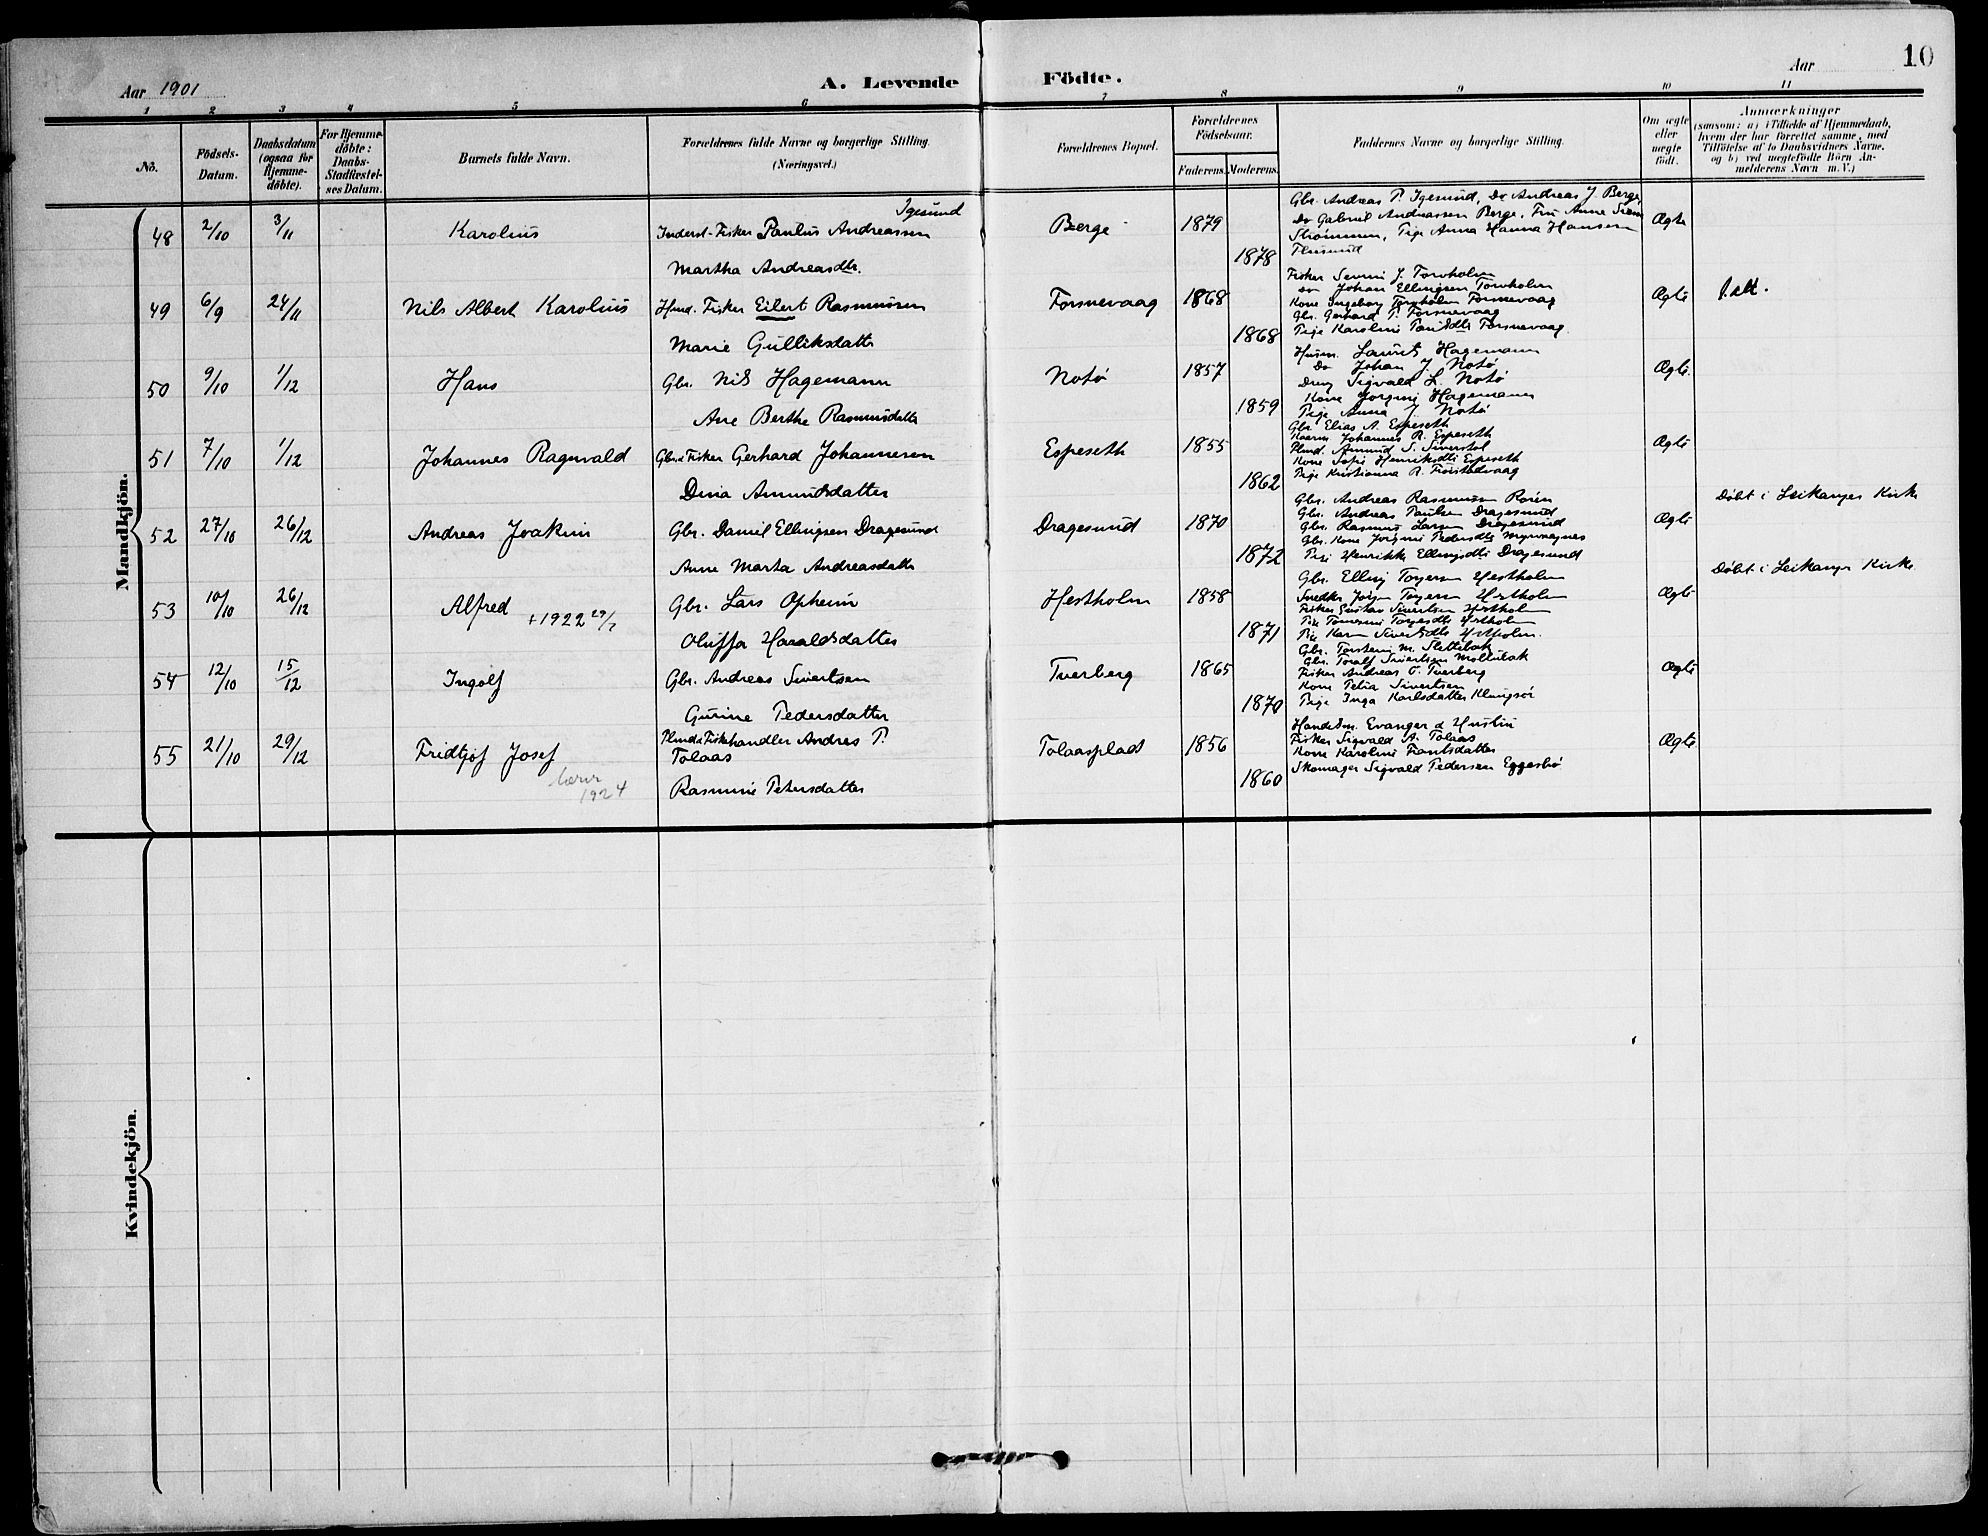 10
Aar 1901
A. Levende Födte.
Aar
1 2 3 4 5 6 7 8 9 10 11
No.
Födsels-Datum.
Daabsdatum (ogsaa for Hjemme-döbte).
For Hjemme-döbte: Daabs-Stadfæstel-ses Datum.
Barnets fulde Navn.
Forældrenes fulde Navne og borgerlige Stilling.
(Næringsvei.)
Forældrenes Bopæl.
Forældrenes Födselsaar.
Faderens. Moderens.
Faddernes Navne og borgerlig Stilling.
Om ægte eller uægte födt.
Anmærkninger
(saasom: a) i Tilfælde af Hjemmedaab,
hvem der har forrettet samme, med
Tilföielse af to Daabsvidners Navne.
og b) ved uegtefödte Börn An-
melderens Navn m. V.)
Mandkjön.
48 2/10 3/11 Karolius
Igesund
Inderst-Fisker Paulus Andreassen
Martha Andreasdtr.
Berge 1879 1878
Gbr. Andreas P. Igesund, Do Andreas J. Berge,
Do Gabriel Andreassen Berge, Fru Anne
Strömmen, Pige Anna Hanna Hansen
Ægte
49 6/9 24/11 Nils Albert Karolius
Husm. Fisker Eilert Rasmussen
Marie Gulliksdatter
Forsnevaag 1868 1868
Fisker Semmi J. Tornholm
Do Johan Ellingsen Tornholm
Kone Ingeborg Tornholm Forsnevaag
Gbr. Gerhard P. Forsnevaag
Pige Karoline Forsnevaag
Ægte
50 9/10 1/12 Hans
Gbr. Nils Hagemann
Ane Berthe Rasmusdatter
Notö 1857 1859
Husm. Laurits Hagemann
Do Johan J. Notö
Dreng Sigvald L. Notö
Kone Jorgine Hagemann
Pige Anna J. Notö
Ægte.
51 7/10 1/12 Johannes Ragnvald
Gbr. Fisker Gerhard Johannesen
Dina Amundsdatter
Espeseth 1855 1862
Gbr. Elias A. Espeseth
Johannes R. Espeseth
Amund S.
Kone Sofie Henriksdtr Espeseth
Pige Kristianna R.
Ægte
52 27/10 26/12 Andreas Joakim
Gbr. Daniel Ellingsen Dragesund
Anne Marta Andreasdatter
Dragesund 1870 1872
Gbr. Andreas Rasmussen
Gbr. Andreas Paulsen Dragesund
Gbr. Rasmus Larsen Dragesund
Gbr. Kone Jorgine Pedersdtr Myrvaagnes
Pige Henrikke Ellingsdtr Dragesund
Ægte
Döbt i Leikanger Kirke
53 10/10 26/12 Alfred
+1922
Gbr. Lars Opheim
Oluffa Haraldsdatter
Hestholm 1858 1871
Gbr. Elling Hestholm
Snedker Hestholm
Fisker Gustav Sivertsen Hestholm
Pige Hestholm
Pige Karen Sivertsdtr Hestholm.
Ægte
Döbt i Leikanger Kirke
54 12/10 15/12 Ingolf
Gbr. Andreas Sivertsen
Gurine Pedersdatter
Tverberg 1865 1870
Gbr. Torstein M. Slettebak
Gbr. Toralf Sivertsen Moltubak
Fisker Andreas O. Tverberg
Kone Petra Sivertsen
Pige Inga Karlsdatter Klungsör
Ægte
55 21/10 29/12 Fridtjof Josef
1924
Fiskehandler Andres P.
Tolaas
Rasmine Petersdatter
Tolaasplads 1856 1860
Handelsm. Evanger
Fisker Sigvald A. Tolaas
Kone Karoline
Skomager Sigvald Pedersen Eggesbö
Ægte
Kvindekjön.